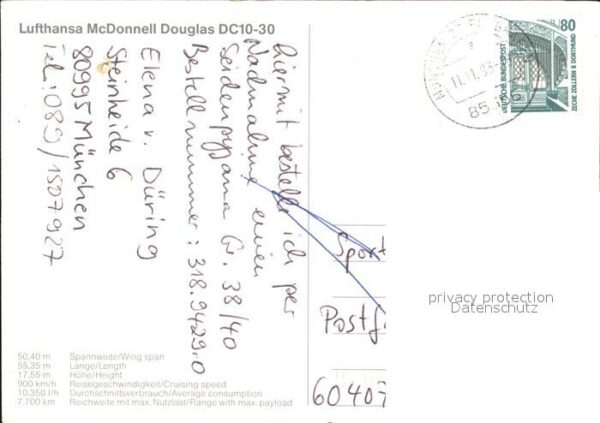 Lufthansa McDonnell Douglas DC10-30
hiermit bestelle ich per
Nachnahme einen
Seidenpyjama Gr. 38/40
Bestellnummer: 318.9429.0
Elena v. Düring
Steinheide 6
80995 München
Tel.: 089/1507927
80
DEUTSCHE BUNDESPOST
ZECHE ZOLLERN II DORTMUND
11.11.93
85
Sport
Postf.
60407
privacy protection
Datenschutz
50,40 m Spannweite/Wing span
55,35 m Länge/Length
17,55 m Höhe/Height
900 km/h Reisegeschwindigkeit/Cruising speed
10.350 l/h Durchschnittsverbrauch/Average consumption
7.700 km Reichweite mit max. Nutzlast/Range with max. payload